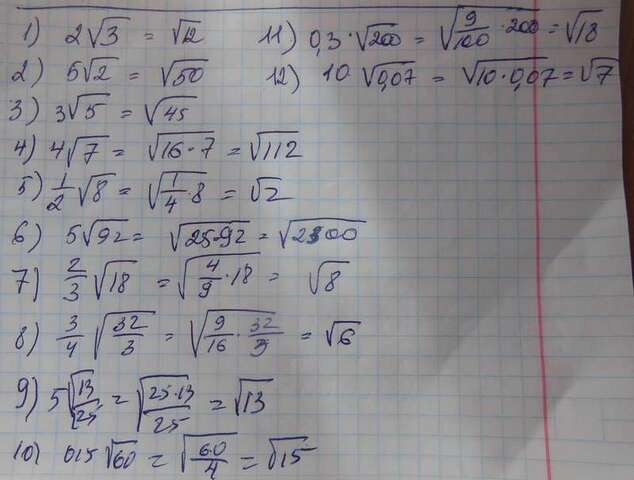 1) 2√3 = √12
2) 5√2 = √50
3) 3√5 = √45
4) 4√7 = √16·7 = √112
5) 1/2 √8 = √1/4·8 = √2
6) 5√92 = √25·92 = √2300
7) 2/3 √18 = √4/9·18 = √8
8) 3/4 √32/3 = √9/16·32/3 = √6
9) 5√13/25 = √25·13/25 = √13
10) 015 √60 = √60/4 = √15
11) 0,3·√200 = √9/100·200 = √18
12) 10·√0,07 = √10·0,07 = √7